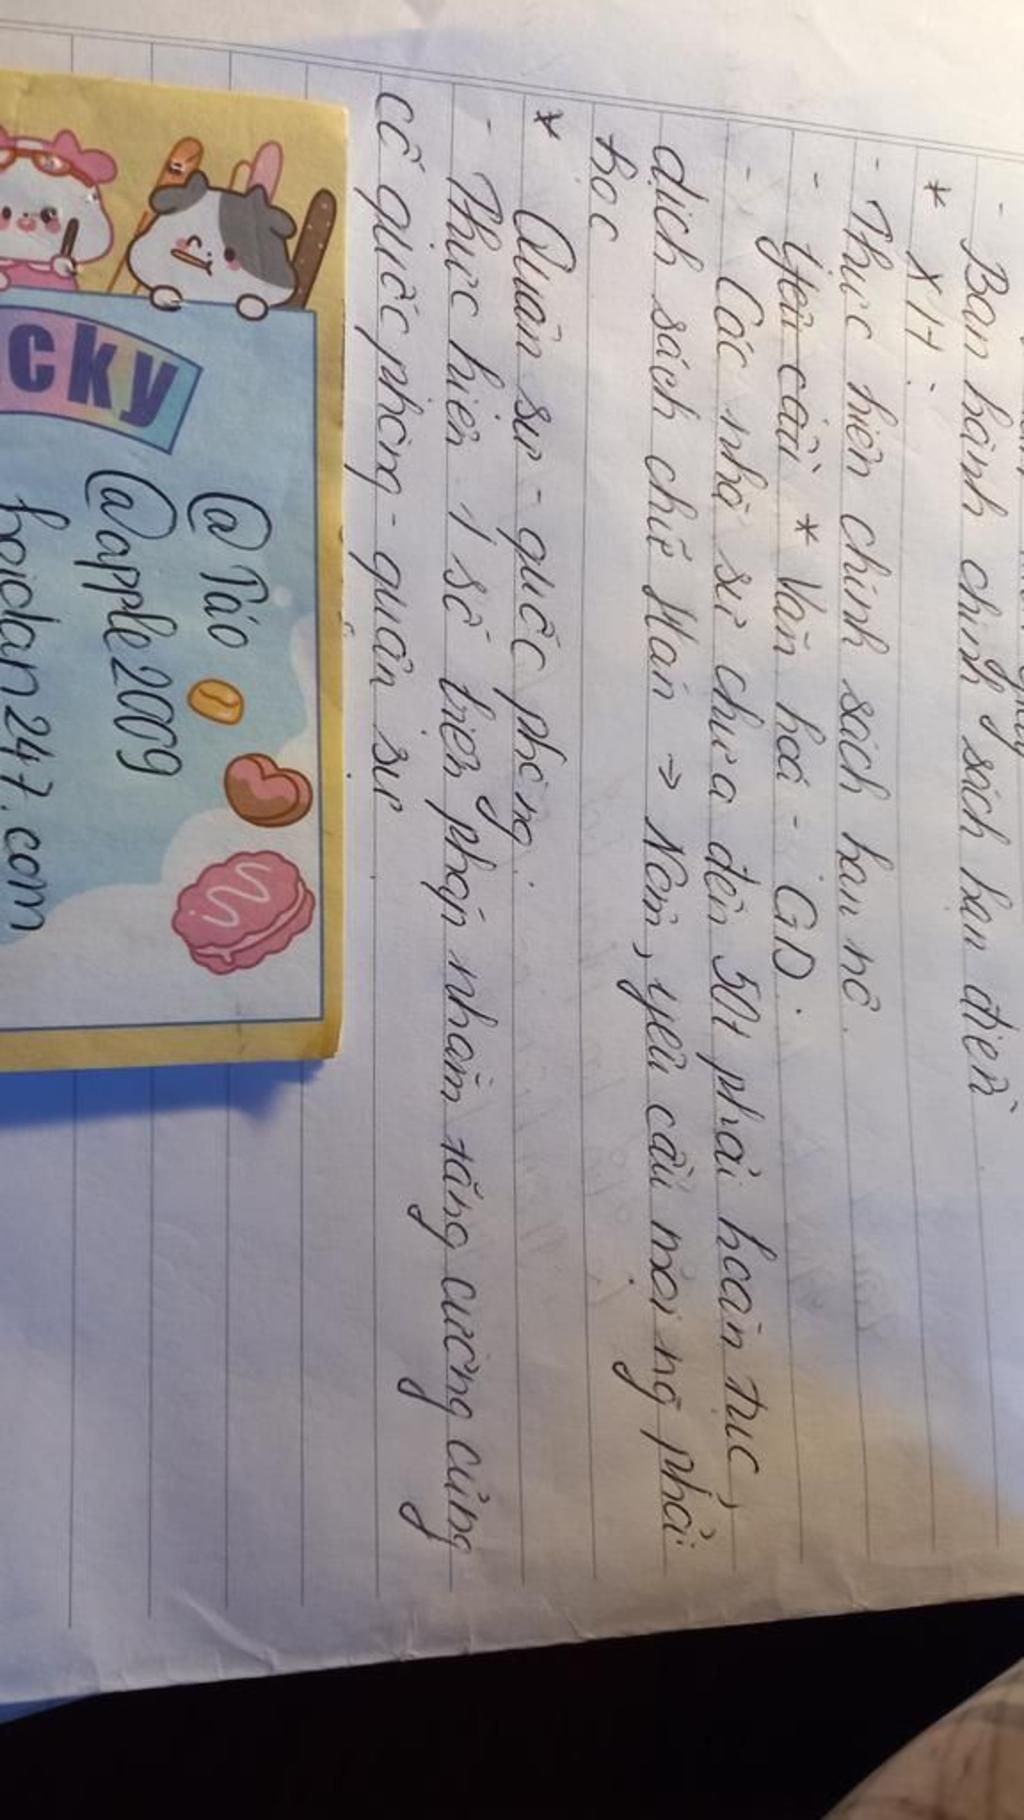 - Ban hành chính sách hạn điền
* XH:
- Thực hiện chính sách hạn nô.
- Yêu cầu * Văn hoá - GD:
- Các nhà sư chưa đến 50t phải hoàn tục,
dịch sách chữ Hán → Nôm, yêu cầu mọi ng phải
học
* Quân sự - quốc phòng:
- Thực hiện 1 số biện pháp nhằm tăng cường củng
cố quốc phòng - quân sự
cky
@Táo
@apple2009
hoidap247.com